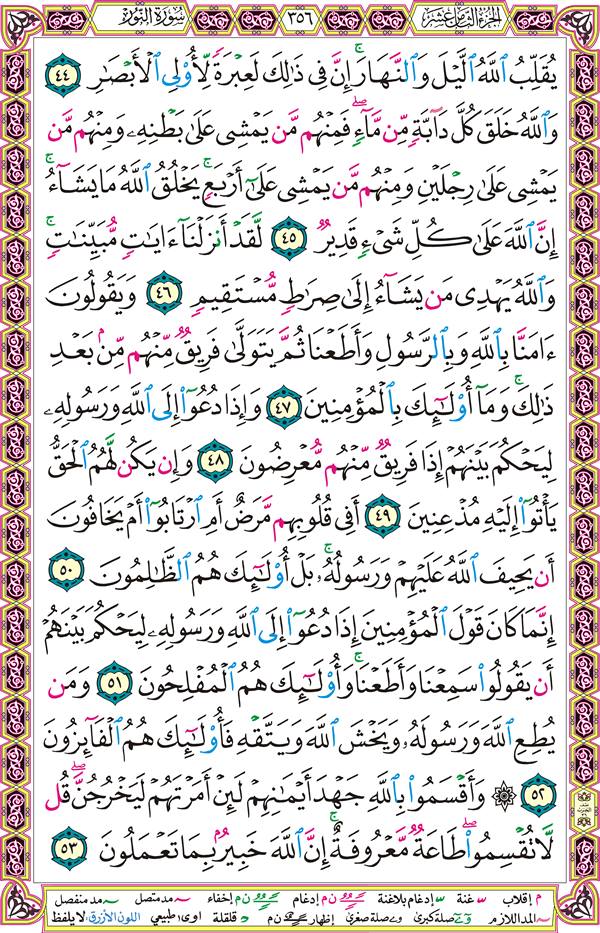 الجزء الثامن عشر ٣٥٦ سورة النور
يُقَلِّبُ ٱللَّهُ ٱلَّيْلَ وَٱلنَّهَارَۚ إِنَّ فِى ذَٰلِكَ لَعِبْرَةً لِّأُو۟لِى ٱلْأَبْصَـٰرِ ٤٤
وَٱللَّهُ خَلَقَ كُلَّ دَآبَّةٍ مِّن مَّآءٍۖ فَمِنْهُم مَّن يَمْشِى عَلَىٰ بَطْنِهِۦ وَمِنْهُم مَّن
يَمْشِى عَلَىٰ رِجْلَيْنِ وَمِنْهُم مَّن يَمْشِى عَلَىٰٓ أَرْبَعٍۚ يَخْلُقُ ٱللَّهُ مَا يَشَآءُۚ
إِنَّ ٱللَّهَ عَلَىٰ كُلِّ شَىْءٍ قَدِيرٌ ٤٥ لَّقَدْ أَنزَلْنَآ ءَايَـٰتٍ مُّبَيِّنَـٰتٍۚ
وَٱللَّهُ يَهْدِى مَن يَشَآءُ إِلَىٰ صِرَٰطٍ مُّسْتَقِيمٍ ٤٦ وَيَقُولُونَ
ءَامَنَّا بِٱللَّهِ وَبِٱلرَّسُولِ وَأَطَعْنَا ثُمَّ يَتَوَلَّىٰ فَرِيقٌ مِّنْهُم مِّنۢ بَعْدِ
ذَٰلِكَۚ وَمَآ أُو۟لَـٰٓئِكَ بِٱلْمُؤْمِنِينَ ٤٧ وَإِذَا دُعُوٓا۟ إِلَى ٱللَّهِ وَرَسُولِهِۦ
لِيَحْكُمَ بَيْنَهُمْ إِذَا فَرِيقٌ مِّنْهُم مُّعْرِضُونَ ٤٨ وَإِن يَكُن لَّهُمُ ٱلْحَقُّ
يَأْتُوٓا۟ إِلَيْهِ مُذْعِنِينَ ٤٩ أَفِى قُلُوبِهِم مَّرَضٌ أَمِ ٱرْتَابُوٓا۟ أَمْ يَخَافُونَ
أَن يَحِيفَ ٱللَّهُ عَلَيْهِمْ وَرَسُولُهُۥۚ بَلْ أُو۟لَـٰٓئِكَ هُمُ ٱلظَّـٰلِمُونَ ٥٠
إِنَّمَا كَانَ قَوْلَ ٱلْمُؤْمِنِينَ إِذَا دُعُوٓا۟ إِلَى ٱللَّهِ وَرَسُولِهِۦ لِيَحْكُمَ بَيْنَهُمْ
أَن يَقُولُوا۟ سَمِعْنَا وَأَطَعْنَاۚ وَأُو۟لَـٰٓئِكَ هُمُ ٱلْمُفْلِحُونَ ٥١ وَمَن
يُطِعِ ٱللَّهَ وَرَسُولَهُۥ وَيَخْشَ ٱللَّهَ وَيَتَّقْهِ فَأُو۟لَـٰٓئِكَ هُمُ ٱلْفَآئِزُونَ
٥٢ ۞ وَأَقْسَمُوا۟ بِٱللَّهِ جَهْدَ أَيْمَـٰنِهِمْ لَئِنْ أَمَرْتَهُمْ لَيَخْرُجُنَّۖ قُل
لَّا تُقْسِمُوا۟ۖ طَاعَةٌ مَّعْرُوفَةٌۚ إِنَّ ٱللَّهَ خَبِيرٌۢ بِمَا تَعْمَلُونَ ٥٣
م إقلاب غنة إدغام بلاغنة ن م إدغام ن م إخفاء مد متصل مد منفصل
المد اللازم و ے صلة كبرى و ے صلة صغرى إظهار ن م قلقلة اوى طبيعي اللون الأزرق: لا يلفظ